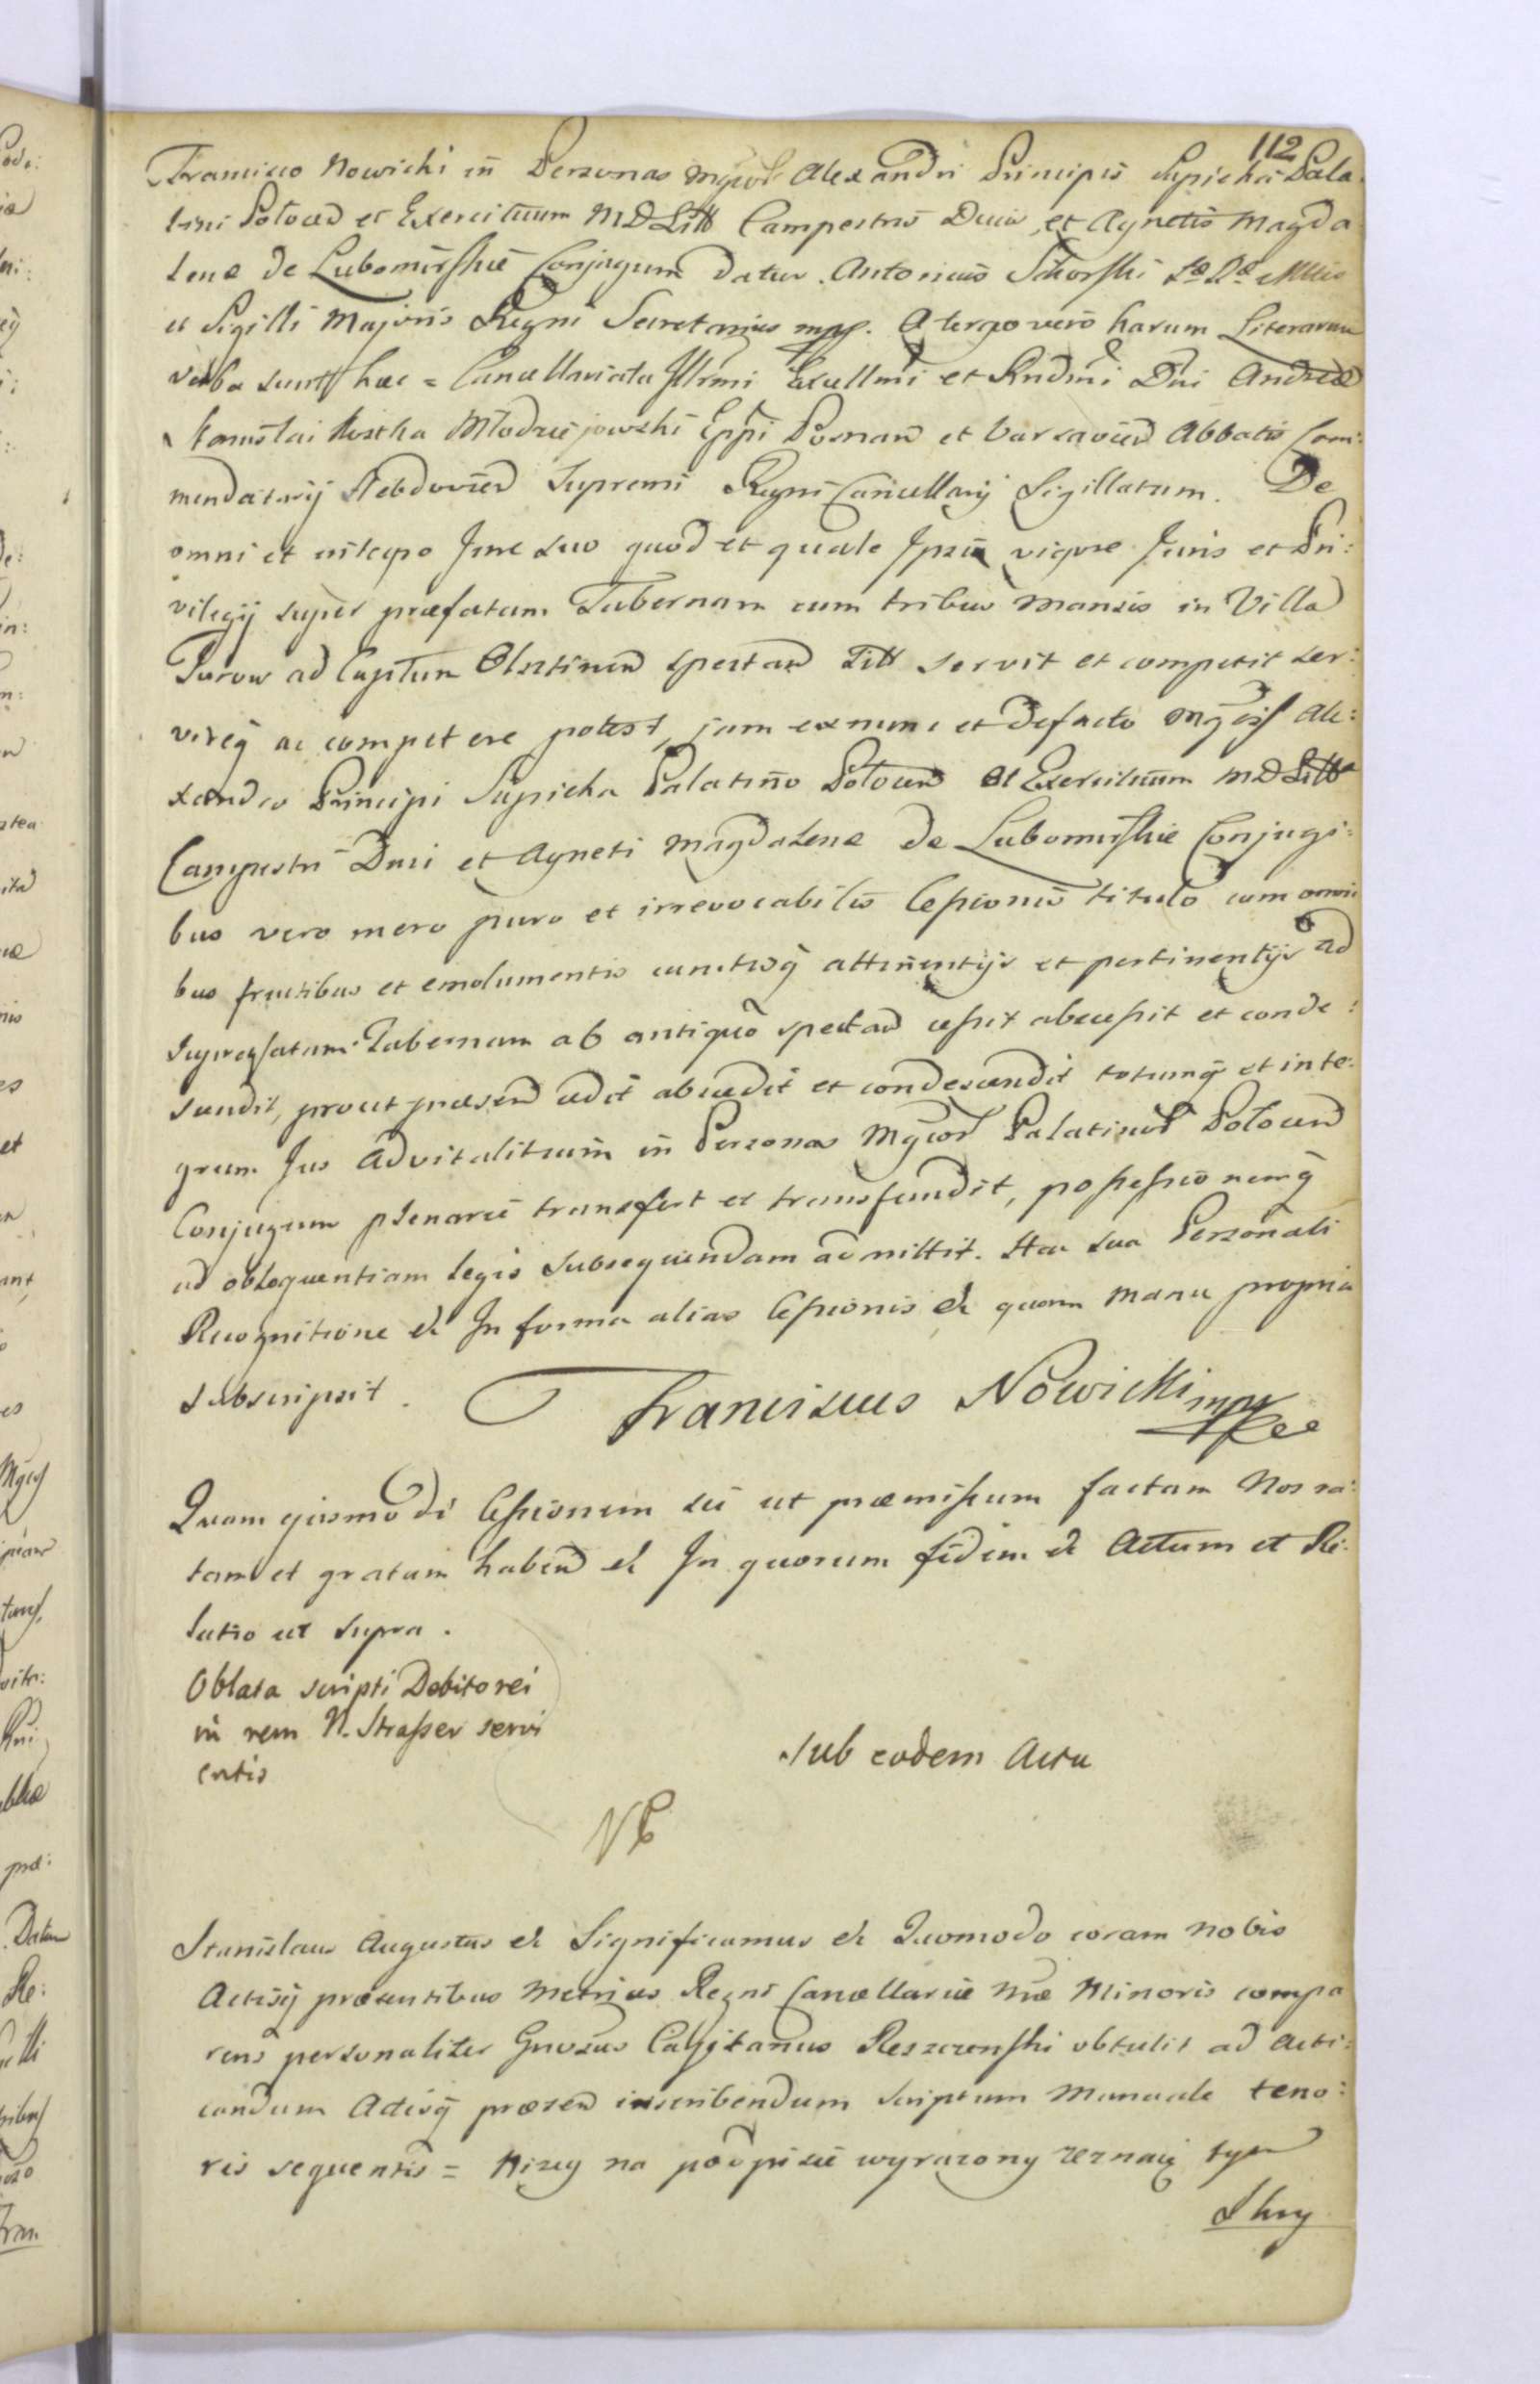 112
Francisco Nowicki in Personas Mgcor Alexandri Principis Sapieha Pala
tini Połocen et Exercituum MDLitt Campestris Ducis, et Agnetis Magda
lenæ de Lubomirskie Conjugum datur. Antonius Sikorski Sæ Ræ Mttis
et Sigilli Majoris Regni Secretarius mpp. A tergo vero harum Literarum
verba sunt hæc = Cancellariatu Illrmi Excellmi et Rndmi Dni Andreæ
Stanislai Kostka Młodziejowski Eppi Posnan et Varsavien Abbatis Com:
mendatarij Hebdovien Supremi Regni Cancellarij Sigillatum. De
omni et integro Jure suo quod et quale Ipsi vigore Juris et Pri:
vilegij super præfatam Tabernam cum tribus Mansis in Villa
Turow ad Capitum Olsztinen spectan Titt servit et competit ser:
vireq ac competere potest, jam ex nunc et defacto Mgcis Ale:
xandro Principi Sapieha Palatino Połocen et Exercituum MDLitt
Campestri Duci et Agneti Magdalenæ de Lubomirskie Conjugi:
bus vero mero puro et irrevocabilis Cessionis titulo cum omni
bus fructibus et emolumentis cunctisq attinentijs et pertinentijs ad
supræfatam Tabernam ab antiquo spectan cessit abcessit et conde:
scendit, prout præsen cedit abscedit et condescendit totumq et inte:
grum Jus advitalitium in Personas Mgcor Palatinor Połocen
Conjugum plenarie transfert et transfundit, possessionemq
ad obloquentiam legis subsequendam admittit. Hac sua Personali
Recognitione &c In forma alias Cessionis &c quam manu propria
subscripsit. Franciscus Nowicki mpp
Quam ejusmodi Cessionem sic ut præmissum factam Nos ra:
tam et gratam haben &c In quorum fidem &c Actum et Re:
latio ut supra.
Oblata scripti Debitorei
in rem N. Strasser servi
entis
Sub eodem Actu
NB
Stanislaus Augustus &c Significamus &c Quomodo coram nobis
Actisq præsentibus Metrices Regni Cancellariæ Nræ Minoris compa
rens personaliter Gnosus Capitanus Reszczenski obtulit ad acti:
candum Actisq præsen inscribendum scriptum Manuale teno:
ris sequentis = Nizey na podpisie wyrazony zeznaię tym
Skry